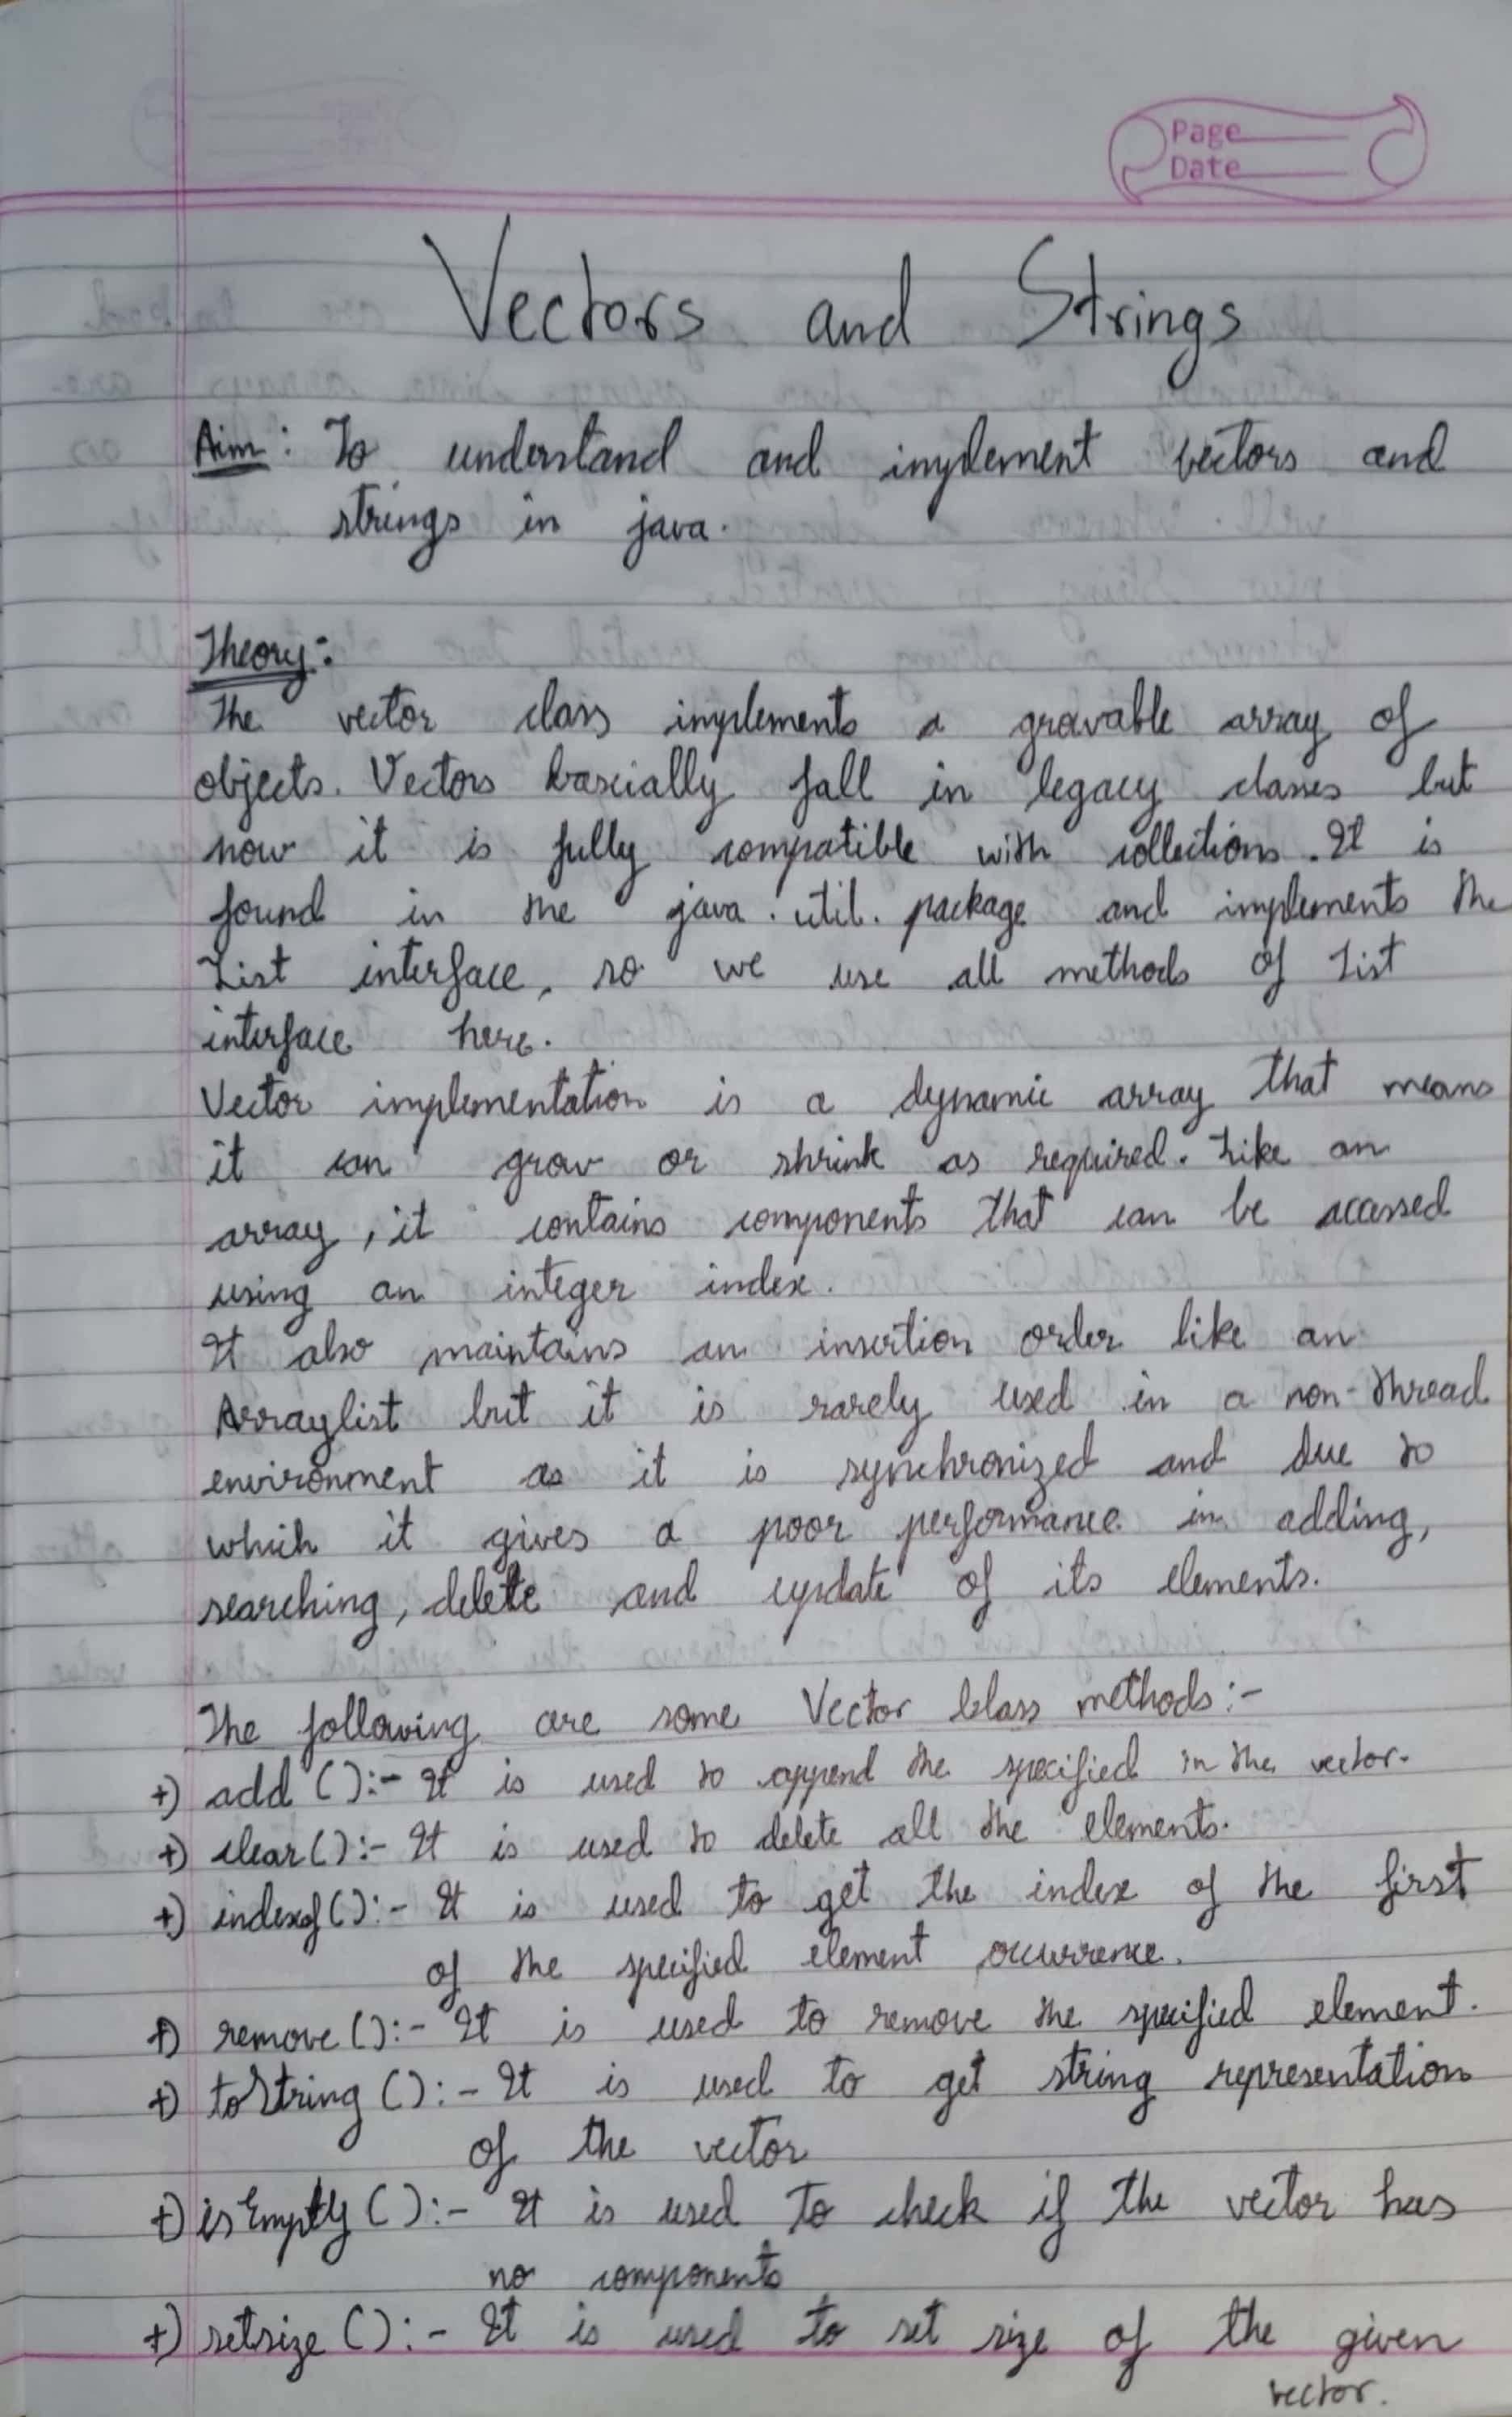 Page
Date
Vectors and Strings
Aim: To understand and implement vectors and
strings in java.
Theory:
The vector class implements a growable array of
objects. Vectors bascially fall in legacy classes but
now it is fully compatible with collections. It is
found in the java.util. package and implements the
List interface, so we use all methods of List
interface here.
Vector implementation is a dynamic array that means
it can grow or shrink as required. Like an
array, it contains components that can be accessed
using an integer index.
It also maintains an insertion order like an
Arraylist but it is rarely used in a non-thread
environment as it is synchronized and due to
which it gives a poor performance in adding,
searching, delete and update of its elements.
The following are some Vector Class methods:-
+) add ():- It is used to append the specified in the vector.
+) clear():- It is used to delete all the elements.
+) indexof():- It is used to get the index of the first
of the specified element occurrence.
+) remove():- It is used to remove the specified element.
+) toString ():- It is used to get string representation
of the vector
+) isEmpty ():- It is used to check if the vector has
no components
+) setsize ():- It is used to set size of the given
vector.